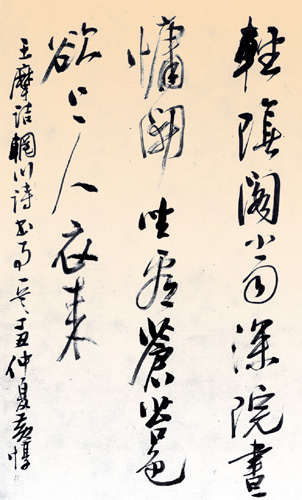 輕陰閣小雨深院晝
慵開坐看蒼苔色
欲上人衣來
王摩詰輞川詩書事一首丁丑仲夏黃惇